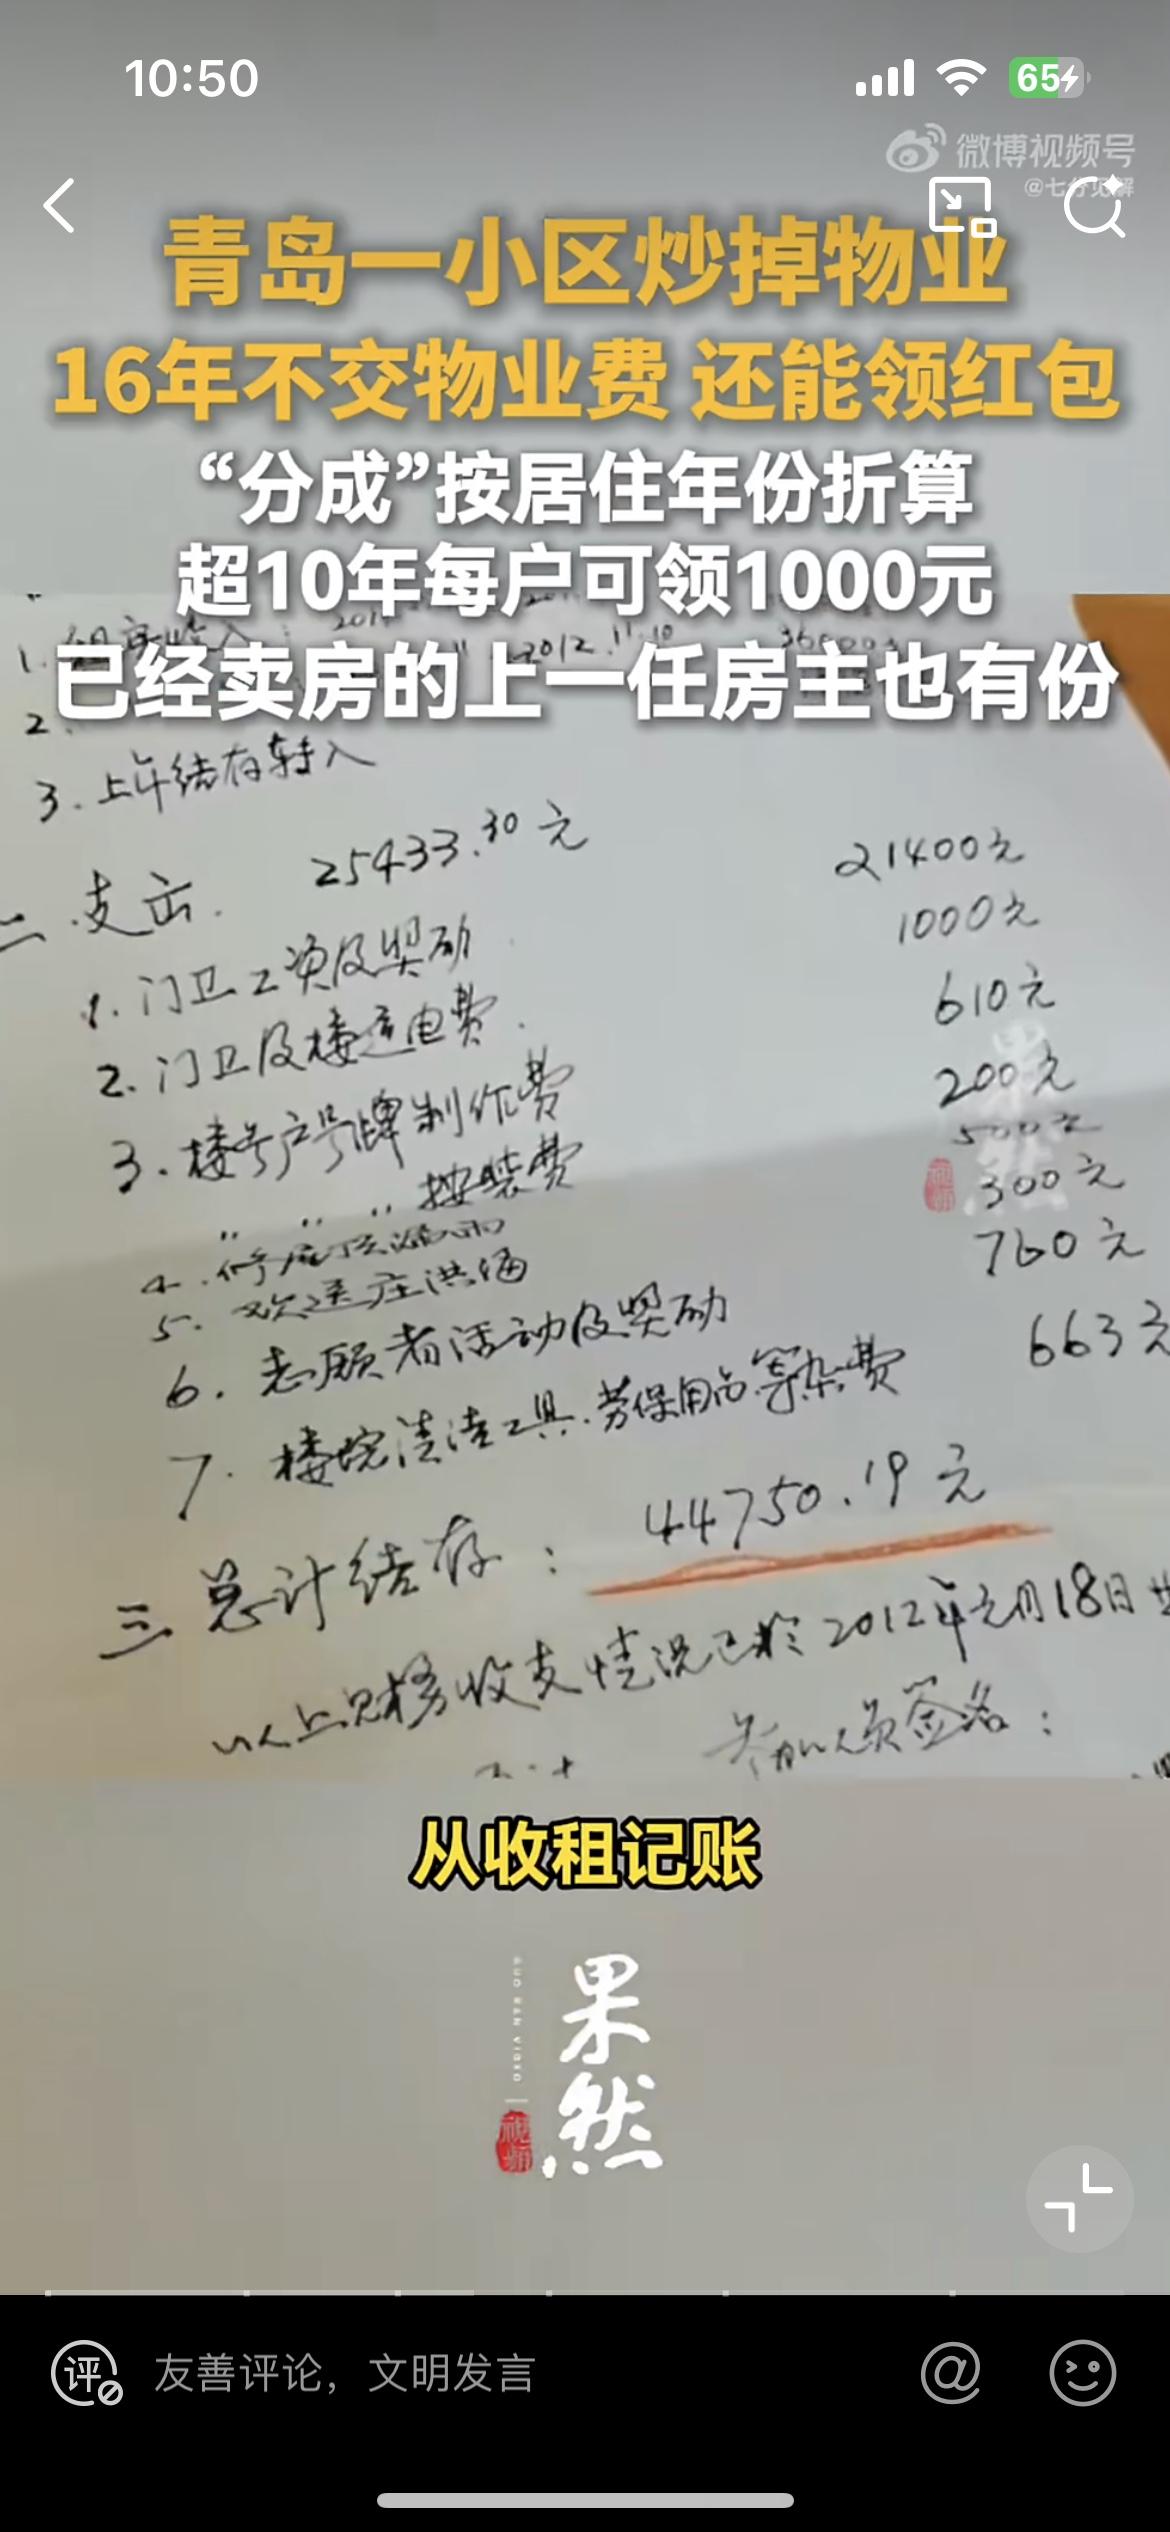 10:50
65
微博视频号
@七分见解
青岛一小区炒掉物业
16年不交物业费 还能领红包
“分成”按居住年份折算
超10年每户可领1000元
已经卖房的上一任房主也有份
1.
2012.11.10
2.
3.上年结存转入
25433.30元
二.支出.
21400元
1.门卫工资及奖励
1000元
2.门卫及楼道电费.
610元
3.楼号户号牌制作费
200元
〃 〃 〃 按装费
500元
4.修屋顶漏雨
300元
5.欢送庄洪海
760元
6.志愿者活动及奖励
663元
7.楼院清洁工具.劳保用品等杂费
三 总计结存: 44750.19元
以上财务收支情况已於2012年元月18日
参加人员签名:
从收租记账
果然
GUO RAN VIDEO
视频
评
友善评论，文明发言
@